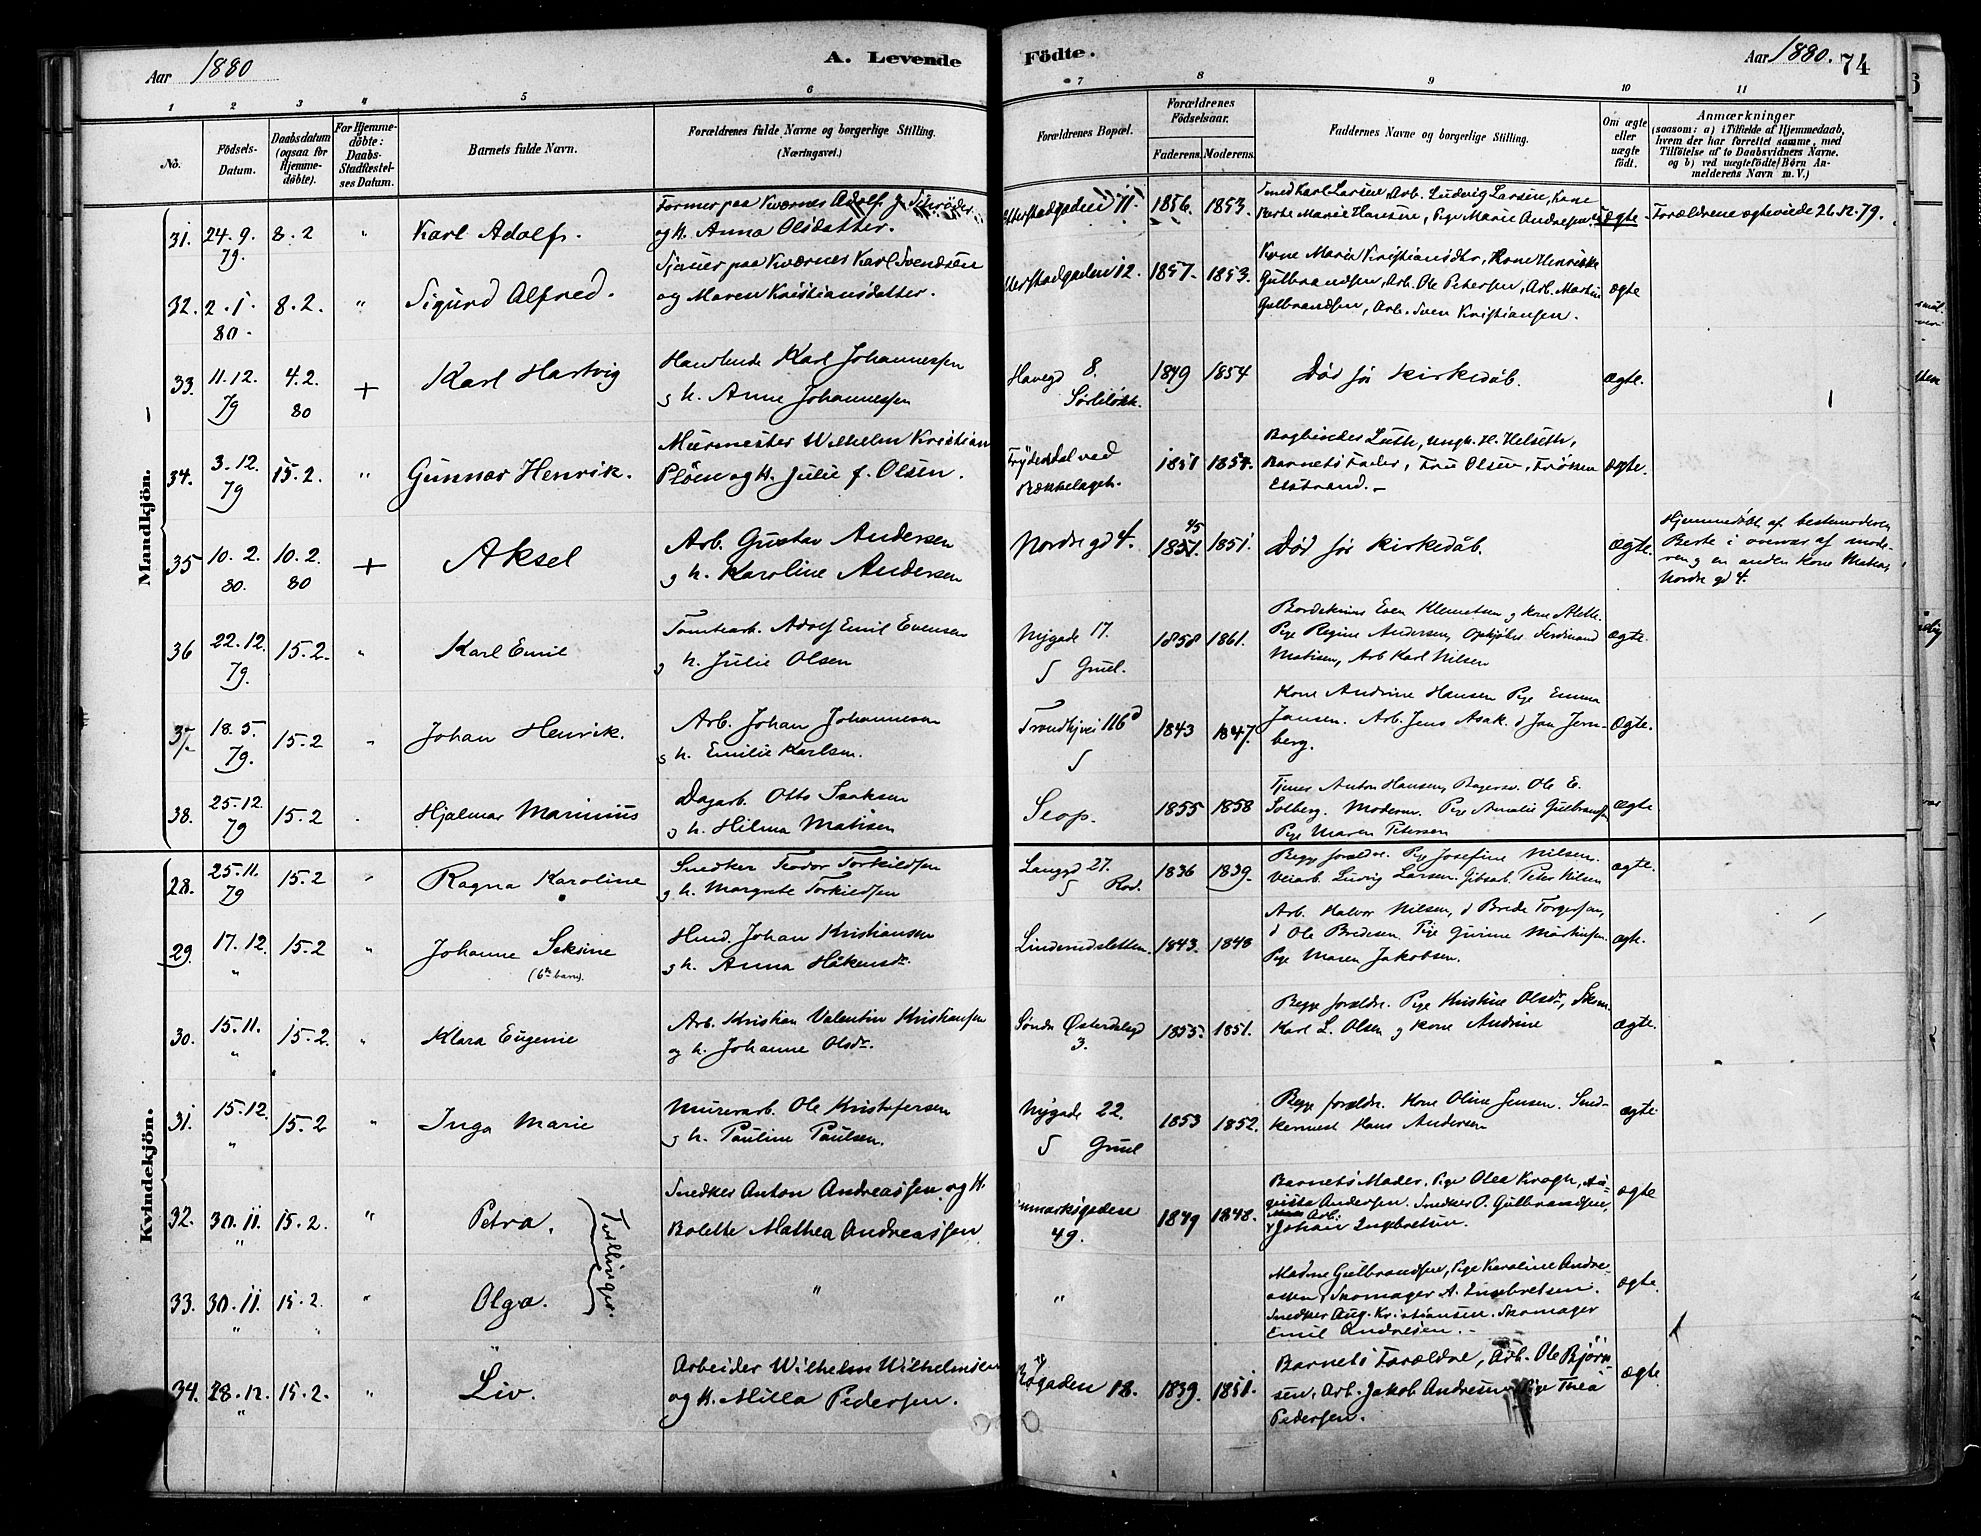 Aar 1880
A. Levende Födte.
Aar 1880. 74
1 2 3 4 5 6 7 8 9 10 11
No.
Födsels-Datum.
Daabsdatum (ogsaa for Hjemme-döbte).
For Hjemme-döbte: Daabs-Stadfæstel-ses Datum.
Barnets fulde Navn.
Forældrenes fulde Navne og borgerlige Stilling. (Næringsvei.)
Forældrenes Bopæl.
Forældrenes Födselsaar.
Faderens. Moderens.
Faddernes Navne og borgerlige Stilling.
Om ægte eller uægte födt.
Anmærkninger
(saasom: a) i Tilfælde af Hjemmedaab,
hvem der har forrettet samme, med
Tilföielse af to Daabsvidners Navne.
og b) ved uægtefödte Børn An-
melderens Navn m. V.)
Mandkjön.
31. 24.9. 79. 8.2 " Karl Adolf.
Former paa Kværnes Adolf J. Schrøder
og H. Anna Olsdatter.
11. 1856. 1853.
Smed Karl Larsen, Arb. Ludvig Larsen, Kone
Berte Marie Hansen, Pige Marie Andresen
ægte
Forældrene ægteviede 26.12.79.
32. 2.1. 80. 8.2. " Sigurd Alfred.
paa Kværnes Karl Svendsen
og Maren Kristiansdatter.
12. 1857. 1853.
Kone Marie Kristiansdtr, Kone Henrikke
Gulbrandsen, Arb. Ole Petersen, Arb. Martin
Gulbrandsen, Arb. Sven Kristiansen.
ægte
33. 11.12. 79 4.2. 80 + Karl Hartvig
Handlende Karl Johannessen
og h. Anne Johannessen
Havegd 8.
1849 1854
Död för kirkedåb.
ægte.
34. 3.12. 79 15.2. " Gunnar Henrik.
Murmester Wilhelm Kristian
Plöen og H. Julie f. Olsen.
Frydendal ved
Bækkelaget.
1851 1854.
Bogbinder Luth, ungk. H. Helseth,
Barnets Fader, Fru Olsen, Frøken
Elstrand.
ægte.
35 10.2. 80. 10.2. 80 + Aksel
Arb. Gustav Andersen
og h. Karoline Andersen
Nordre gd 4.
45
1851. 1851.
Död för kirkedåb.
ægte.
Hjemmedöbt af bestemoderen
Berte i overvær af mode-
ren og en anden kone Matea,
Nordre gd 4.
36 22.12. 79. 15.2. " Karl Emil
Tomtearb. Adolf Emil Evensen
og h. Julie Olsen
Nygade 17.
1858 1861.
Even Klemetsen og kone Alette.
Pige Regine Andersen, Ferdinand
Matisen, Arb Karl Nilsen
ægte.
37. 18.5. 79. 15.2 " Johan Henrik.
Arb. Johan Johannesen
og h. Emilie Karlsen.
Trondhjvei 116
1843 1847.
Kone Andrine Hansen Pige Emma
Jansen. Arb. Jens Asak. d Jan Jern-
berg.
Ægte.
38. 25.12. 79 15.2 Hjalmar Marinius
Dagarb. Otto Isaksen
og h. Hilma Matisen
1855 1858
Tjener Anton Hansen, Bagersv. Ole E.
Solberg. Moderen. Pige Amalie Gulbrands
Pige Maren Petersen
ægte
Kvindekjön.
28. 25.11. 79 15.2 " Ragna Karoline
Snedker Teodor Torkildsen
og h. Margrete Torkildsen
Langgd 27.
1836 1839.
Begge forældre. Pige Josefine Nilsen.
Veiarb. Ludvig Larsen. Gibsarb. Peter Nilsen
ægte.
29. 17.12 " 15.2 " Johanne
(6te barn)
Johan Kristiansen
og h. Anna Håkensdr.
Linderudsletten.
1843. 1840
Arb. Halvor Nilsen, d Brede Torgersen,
d Ole Bredesen. Pige
Pige Maren Jakobsen.
ægte.
30. 15.11. " 15.2. " Klara Eugenie
Arb. Kristian Valentin Kristiansen
og h. Johanne Olsdr.
Søndre Østerdalsgd
3.
1855. 1851.
Begge forældre. Pige Kristine Olsdr,
Karl L. Olsen og kone Andrine
ægte.
31. 15.12. " 15.2 " Inga Marie
Murerarb. Ole Kristofersen
og h. Pauline Paulsen.
Nygade 22.
1853 1852.
Begge forældre. Kone Oline Jensen. Sned-
kermest Hans Andersen
ægte
32. 30.11. " 15.2. " Petra.
Tvillinger.
Snedker Anton Andreassen og H.
Bolette Mathea Andreassen
49.
1849 1848.
Barnets Moder, Pige Olea Krogh, Au-
gusta Andersen. Snedker O. Gulbrandsen,
Arb.
Johan Ingebretsen.
ægte
33. 30.11. " 15.2. " Olga.
"
"
Madme Gulbrandsen, Pige Karoline Andre-
asen, Skomager A. Ingebretsen.
Snedker Aug. Kristiansen. Skomager
Emil Andresen.
ægte.
34. 28.12. " 15.2. " Liv.
Arbeider Wilhelm Wilhelmsen
og H. Milla Pedersen.
18. 1839. 1851.
Barnets Forældre, Arb. Ole Bjørn-
sen, Arb. Jakob Andresen, Pige Thea
Pedersen.
ægte.